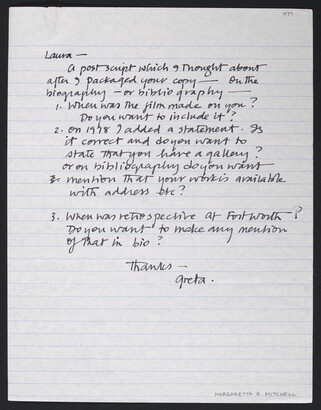 1977
Laura —
A post script which I thought about
after I packaged your copy — On the
biography — or bibliography —
1. When was the film made on you?
Do you want to include it?
2. On 1978 I added a statement. Is
it correct and do you want to
state that you have a gallery?
or on bibliography do you want
mention that your work is available
with address etc?
3. When was retrospective at Fort Worth?
Do you want to make any mention
of that in bio?
Thanks —
Greta.
MARGARETTA K. MITCHELL